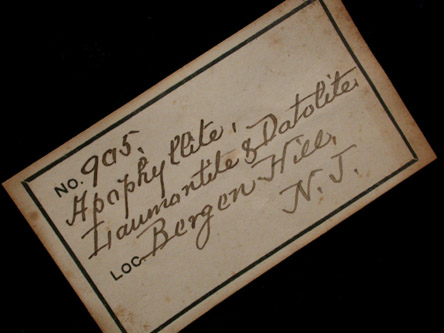 NO. 995.
Apophyllite,
Laumontite & Datolite.
LOC. Bergen Hill,
N. J.